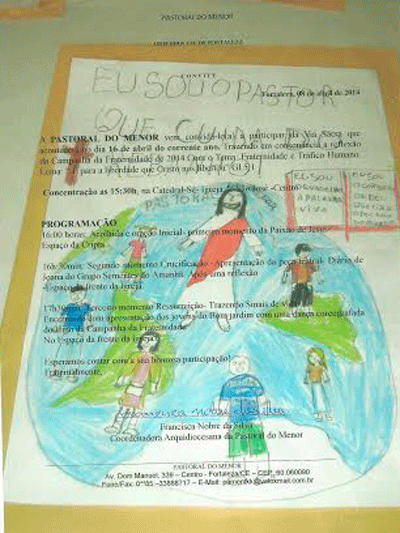 PASTORAL DO MENOR
CONVITE
EU SOU O PASTOR
Fortaleza, 08 de abril de 2014
QUE
A PASTORAL DO MENOR vem convidá-lo(a) a participar da Via Sacra que
acontecerá no dia 16 de abril do corrente ano. Trazendo em consonância a reflexão
da Campanha da Fraternidade de 2014 Com o Tema: Fraternidade e Tráfico Humano
Lema: É para a liberdade que Cristo nos libertou. Gl 5,1
Concentração as 15:30h, na Catedral-Sé- Igreja - Centro
PASTORAL
EU SOU
A PALAVRA
VIVA
EU SOU
PROGRAMAÇÃO
16:00 horas: Acolhida e oração Inicial- primeiro momento da Paixão de Jesus-
Espaço da Cripta
16h:30min: Segundo momento Crucificação - Apresentação do peça teatral: Diário de
Joana do Grupo Sementes do Amanhã. Após uma reflexão
-Espaço da frente da Igreja
17h30min: Terceiro momento Ressurreição- Trazendo Sinais de Vida
Encerrando com apresentação dos jovens do Bom jardim com uma dança contextualizada
do da Campanha da Fraternidade
No Espaço da frente da Igreja
Esperamos contar com a sua honrosa participação!
Fraternalmente,
Francisca Nobre da Silva
Francisca Nobre da Silva
Coordenadora Arquidiocesana da Pastoral do Menor
PASTORAL DO MENOR
Av. Dom Manuel, 339 – Centro - Fortaleza/CE – CEP. 60.060090